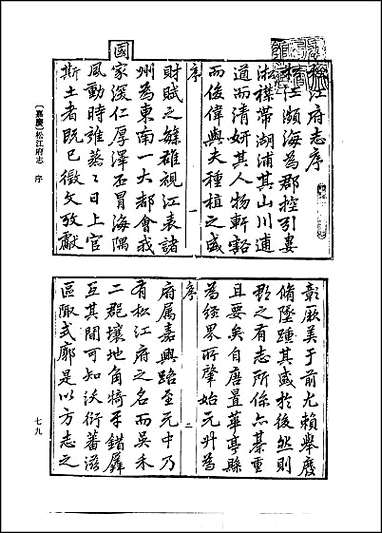 松江府志序
松江瀕海為郡控引婁
淞襟帶湖浦其山川逋
道而清妍其人物軒豁
而俊偉與夫種植之盛
序
一
財賦之餘雄視江表諸
州為東南一大都會我
國
家深仁厚澤丕冒海隅
風動時雍熬日上官
斯土者既已徵文攷獻
〔嘉慶〕松江府志 序
彰厥美于前尤賴舉廢
脩墜踵其盛於後然則
郡之有志所係亦綦重
且要矣自唐置華亭縣
為經界所肇始元升為
序
二
府屬嘉興路至元中乃
有松江府之名而吳禾
二郡壤地角犄牙錯犀
互其間可知沃衍蕃滋
區陬式廓是以方志之
七九